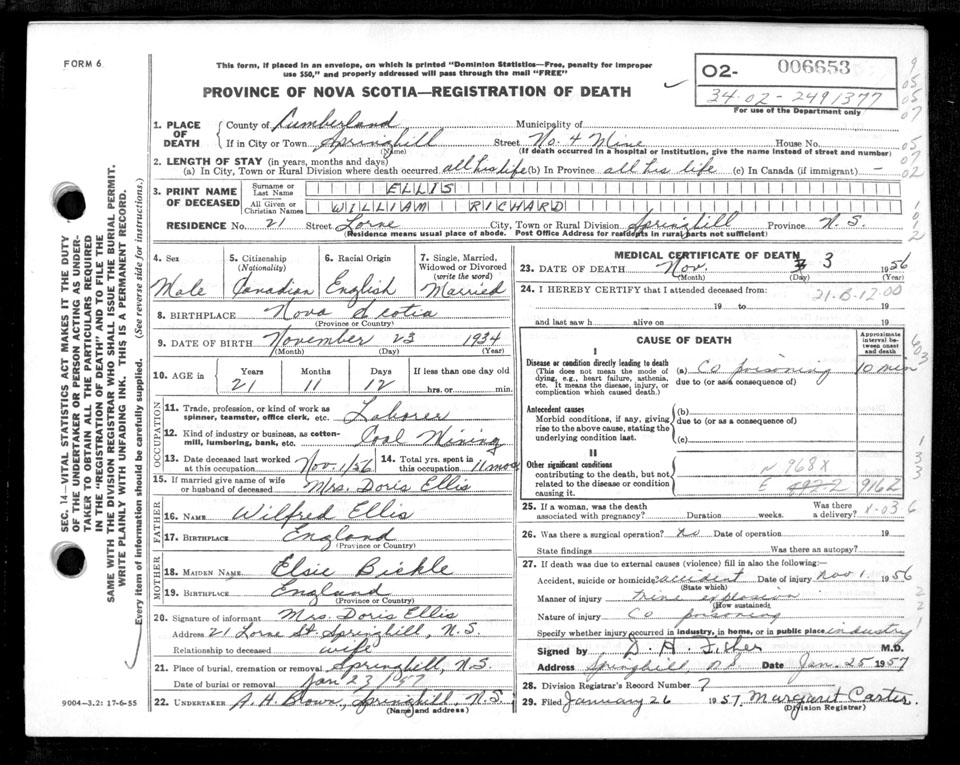 FORM 6
This form, if placed in an envelope, on which is printed "Dominion Statistics—Free, penalty for improper
use $50," and properly addressed will pass through the mail "FREE"
PROVINCE OF NOVA SCOTIA—REGISTRATION OF DEATH
02- 006653
34-02-2491377
For use of the Department only
1. PLACE OF DEATH
County of Cumberland Municipality of
If in City or Town Springhill Street No. 4 Mine House No.
(Name) (If death occurred in a hospital or institution, give the name instead of street and number)
2. LENGTH OF STAY (in years, months and days)
(a) In City, Town or Rural Division where death occurred all his life (b) In Province all his life (c) In Canada (if immigrant) —
3. PRINT NAME OF DECEASED
Surname or Last Name ELLIS
All Given or Christian Names WILLIAM RICHARD
RESIDENCE No. 21 Street Lorne City, Town or Rural Division Springhill Province N.S.
(Residence means usual place of abode. Post Office Address for residents in rural parts not sufficient)
4. Sex
Male
5. Citizenship (Nationality)
Canadian
6. Racial Origin
English
7. Single, Married, Widowed or Divorced (write the word)
Married
8. BIRTHPLACE Nova Scotia
(Province or Country)
9. DATE OF BIRTH November 23 1934
(Month) (Day) (Year)
10. AGE in Years Months Days If less than one day old
21 11 12 hrs. or min.
OCCUPATION
11. Trade, profession, or kind of work as spinner, teamster, office clerk, etc. Laborer
12. Kind of industry or business, as cotton-mill, lumbering, bank, etc. Coal Mining
13. Date deceased last worked at this occupation Nov. 1/56
14. Total yrs. spent in this occupation 11 mos
15. If married give name of wife or husband of deceased Mrs. Doris Ellis
FATHER
16. NAME Wilfred Ellis
17. BIRTHPLACE England
(Province or Country)
MOTHER
18. MAIDEN NAME Elsie Bickle
19. BIRTHPLACE England
(Province or Country)
20. Signature of informant Mrs. Doris Ellis
Address 21 Lorne St. Springhill, N.S.
Relationship to deceased wife
21. Place of burial, cremation or removal Springhill, N.S.
Date of burial or removal Jan 23/57
22. UNDERTAKER A. H. Brown, Springhill, N.S.
(Name and address)
MEDICAL CERTIFICATE OF DEATH
23. DATE OF DEATH Nov. 3 1956
(Month) (Day) (Year)
24. I HEREBY CERTIFY that I attended deceased from:
21-B-12.00
19 to 19
and last saw h alive on 19
CAUSE OF DEATH
Approximate interval between onset and death
I
Disease or condition directly leading to death
(This does not mean the mode of dying, e.g., heart failure, asthenia, etc. It means the disease, injury, or complication which caused death.)
(a) Co poisoning 10 min
due to (or as a consequence of)
Antecedent causes
Morbid conditions, if any, giving rise to the above cause, stating the underlying condition last.
(b)
due to (or as a consequence of)
(c)
II
Other significant conditions
contributing to the death, but not related to the disease or condition causing it.
N 968X
E 9162
25. If a woman, was the death associated with pregnancy? Duration weeks. Was there a delivery?
26. Was there a surgical operation? No Date of operation 19
State findings Was there an autopsy?
27. If death was due to external causes (violence) fill in also the following:
Accident, suicide or homicide? accident Date of injury Nov 1. 1956
(State which)
Manner of injury mine explosion
(How sustained)
Nature of injury Co poisoning
Specify whether injury occurred in industry, in home, or in public place industry
Signed by M.D.
Address Springhill, N.S. Date Jan. 25 1957
28. Division Registrar's Record Number 7
29. Filed January 26 1957. Margaret Carter.
(Division Registrar)
9004—3.2: 17-6-55
SEC. 14—VITAL STATISTICS ACT MAKES IT THE DUTY
OF THE UNDERTAKER OR PERSON ACTING AS UNDER-
TAKER TO OBTAIN ALL THE PARTICULARS REQUIRED
IN THE "REGISTRATION OF DEATH" AND TO FILE THE
SAME WITH THE DIVISION REGISTRAR WHO SHALL ISSUE THE BURIAL PERMIT.
WRITE PLAINLY WITH UNFADING INK. THIS IS A PERMANENT RECORD.
Every item of information should be carefully supplied. (See reverse side for instructions.)